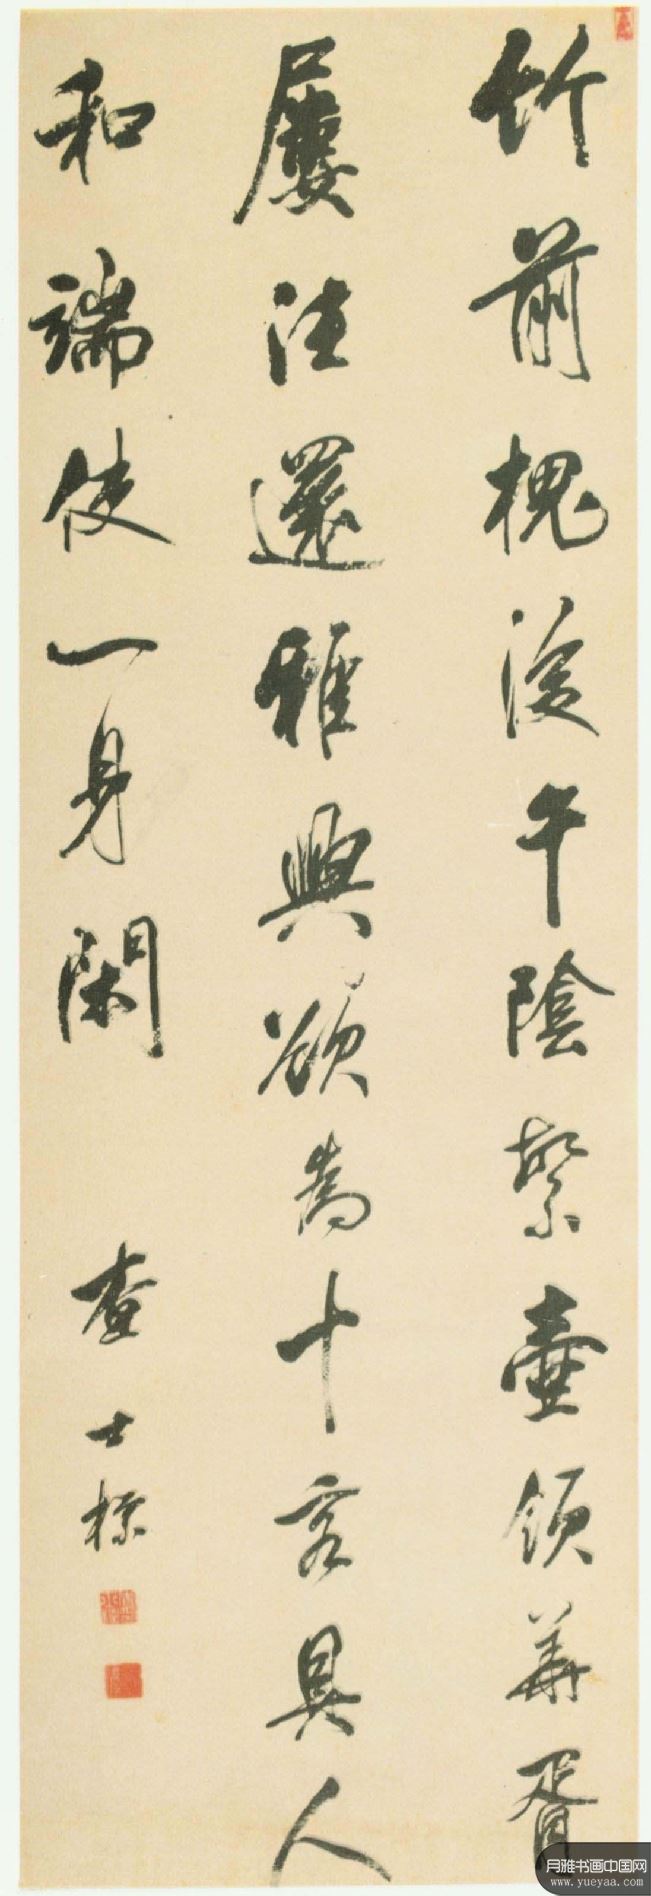 竹前槐後午陰繁壺領華胥
屢往還雅興欲為十客具人
和端使一身閑
查士標
月雅书画中国网
www.yueyaa.com